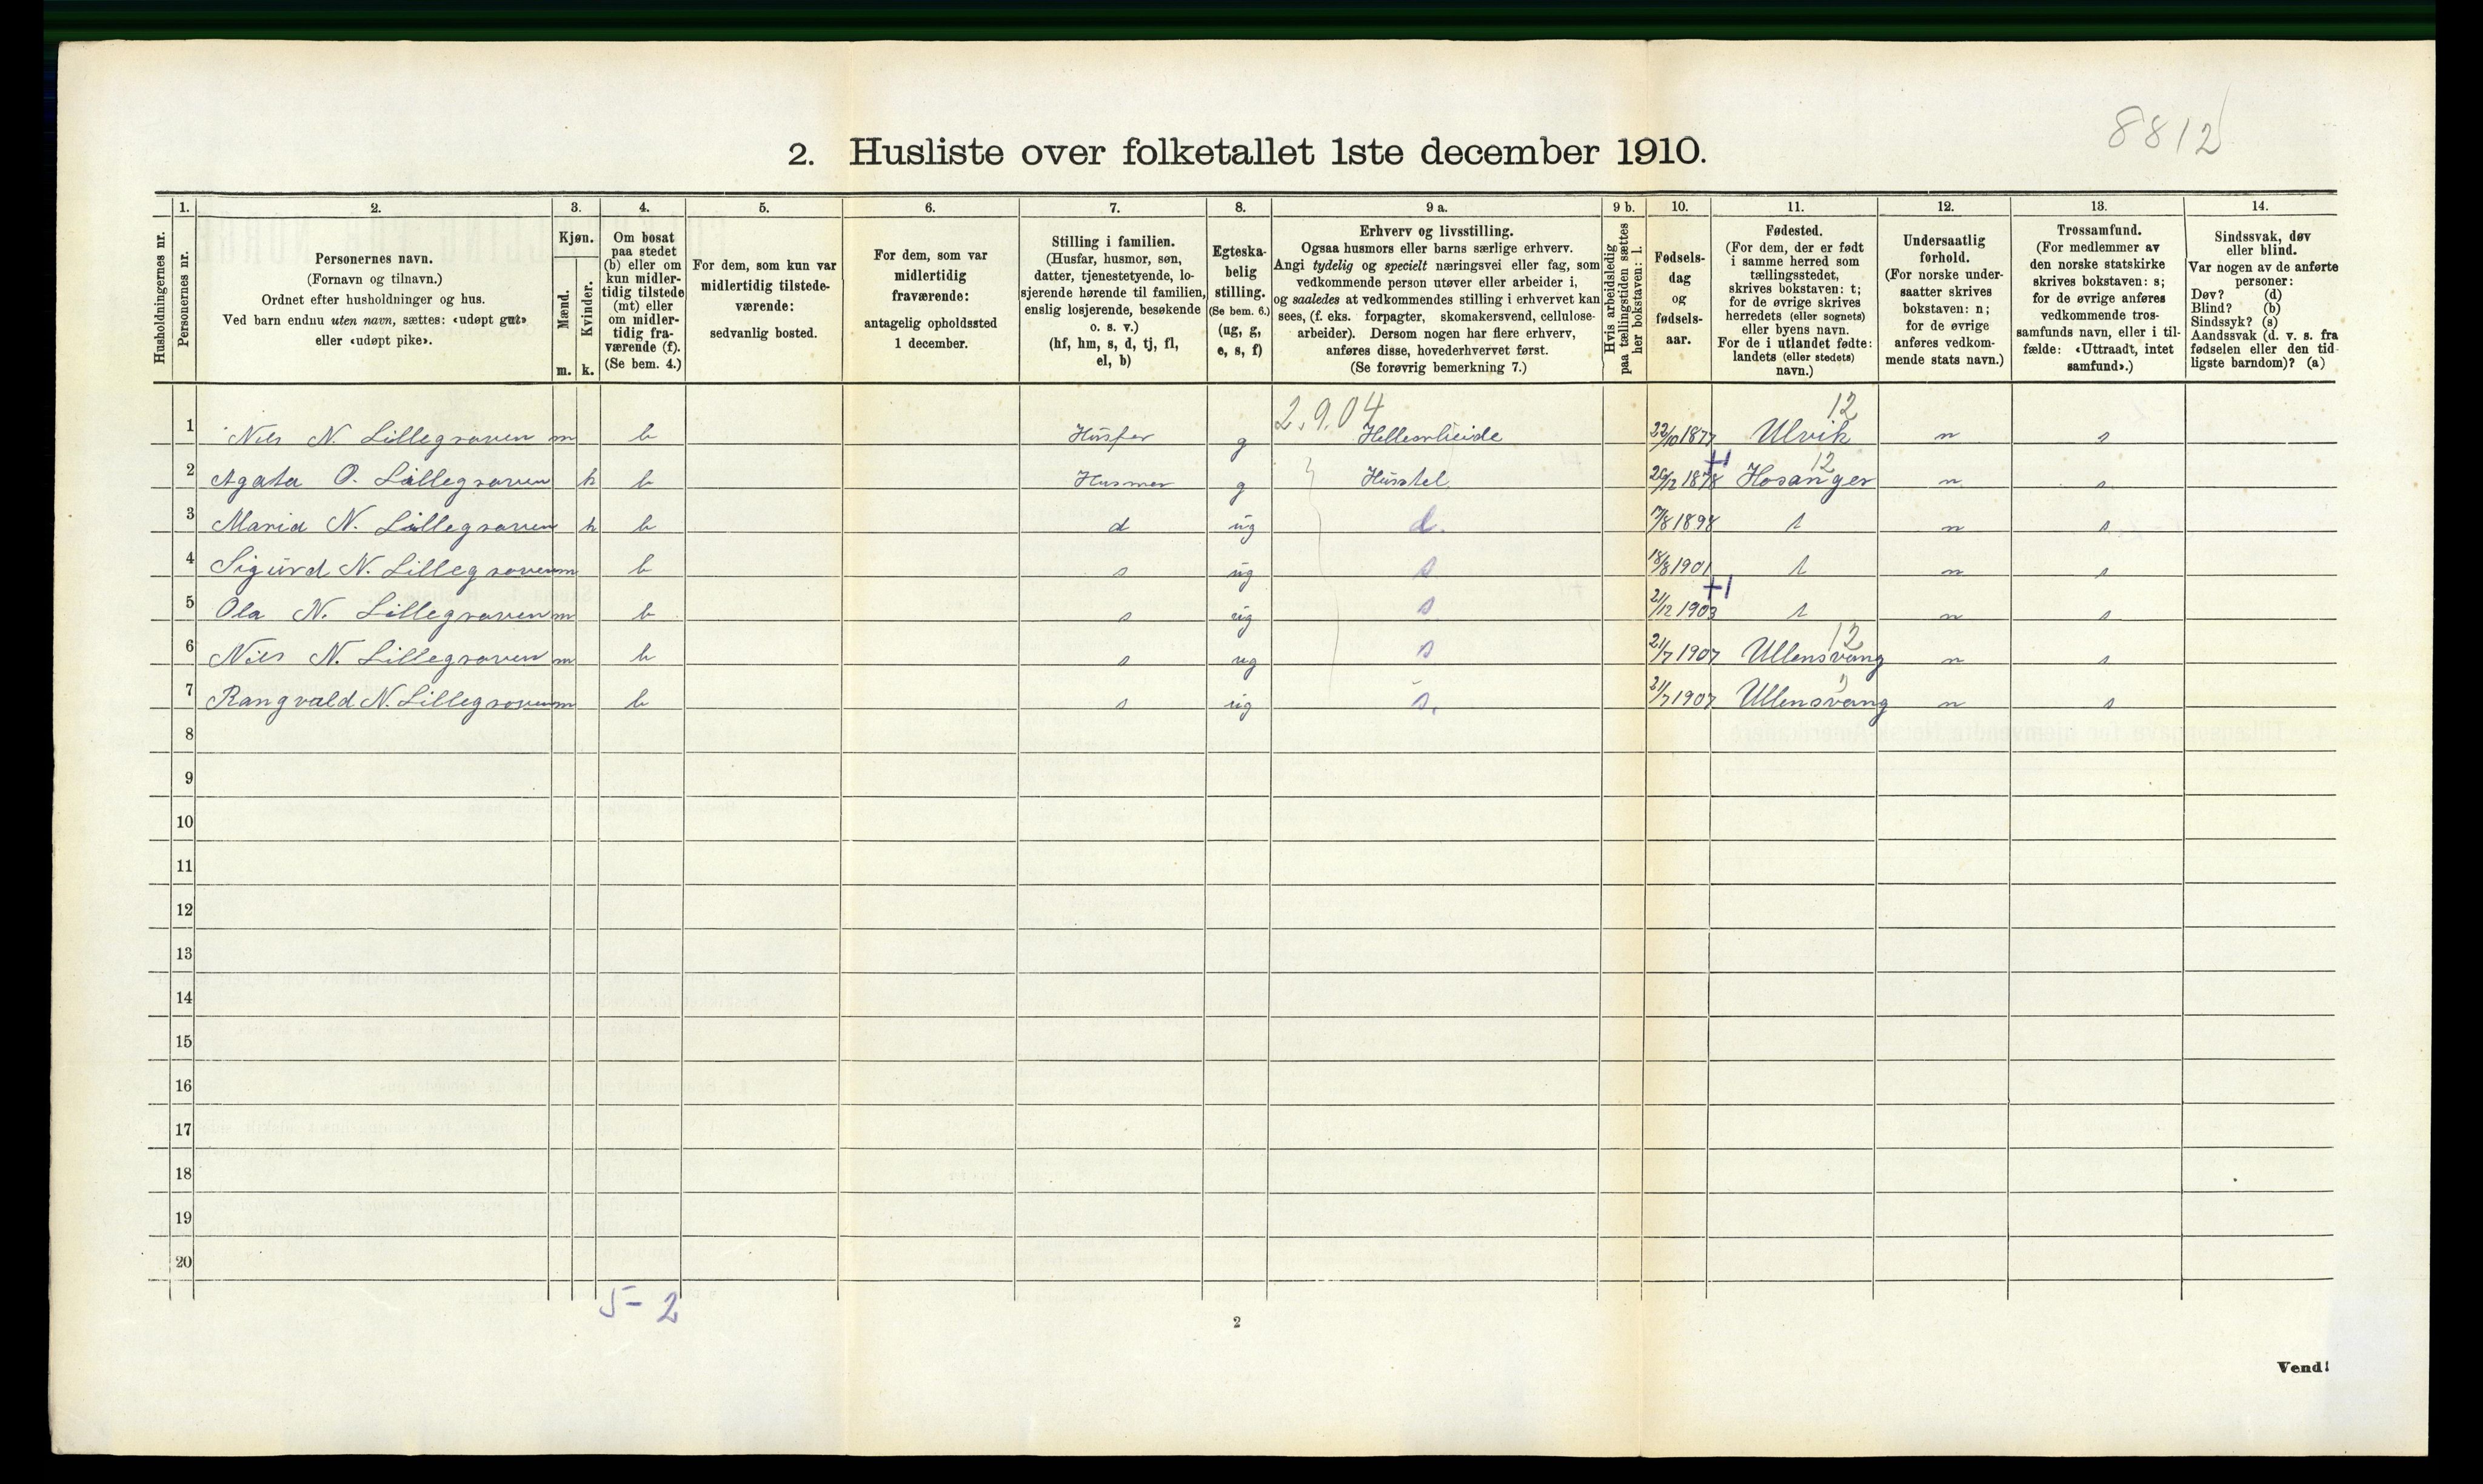 8812
2. Husliste over folketallet 1ste december 1910.
Husholdningernes nr.
1. Personernes nr.
2. Personernes navn.
(Fornavn og tilnavn.)
Ordnet efter husholdninger og hus.
Ved barn endnu uten navn, sættes: «udøpt gut»
eller «udøpt pike».
3. Kjøn.
Mænd. m.
Kvinder. k.
4. Om bosat
paa stedet
(b) eller om
kun midler-
tidig tilstede
(mt) eller
om midler-
tidig fra-
værende (f).
(Se bem. 4.)
5. For dem, som kun var
midlertidig tilstede-
værende:
sedvanlig bosted.
6. For dem, som var
midlertidig
fraværende:
antagelig opholdssted
1 december.
7. Stilling i familien.
(Husfar, husmor, søn,
datter, tjenestetyende, lo-
sjerende hørende til familien,
enslig losjerende, besøkende
o. s. v.)
(hf, hm, s, d, tj, fl,
el, b)
8. Egteska-
belig
stilling.
(Se bem. 6.)
(ug, g,
e, s, f)
9 a. Erhverv og livsstilling.
Ogsaa husmors eller barns særlige erhverv.
Angi tydelig og specielt næringsvei eller fag, som
vedkommende person utøver eller arbeider i,
og saaledes at vedkommendes stilling i erhvervet kan
sees, (f. eks. forpagter, skomakersvend, cellulose-
arbeider). Dersom nogen har flere erhverv,
anføres disse, hovederhvervet først.
(Se forøvrig bemerkning 7.)
9 b. Hvis arbeidsledig
paa tællingstiden sættes
her bokstaven: l.
10. Fødsels-
dag
og
fødsels-
aar.
11. Fødested.
(For dem, der er født
i samme herred som
tællingsstedet,
skrives bokstaven: t;
for de øvrige skrives
herredets (eller sognets)
eller byens navn.
For de i utlandet fødte:
landets (eller stedets)
navn.)
12. Undersaatlig
forhold.
(For norske under-
saatter skrives
bokstaven: n;
for de øvrige
anføres vedkom-
mende stats navn.)
13. Trossamfund.
(For medlemmer av
den norske statskirke
skrives bokstaven: s;
for de øvrige anføres
vedkommende tros-
samfunds navn, eller i til-
fælde: «Uttraadt, intet
samfund».)
14. Sindssvak, døv
eller blind.
Var nogen av de anførte
personer:
Døv? (d)
Blind? (b)
Sindssyk? (s)
Aandssvak (d. v. s. fra
fødselen eller den tid-
ligste barndom)? (a)
2.9.04 12
1 Nils N. Lillegraven m b Husfar g Hellearbeide 22/10 1877 Ulvik n s
+1 12
2 Agata O. Lillegraven k b Husmor g Husstel 26/12 1878 Hosanger n s
3 Maria N. Lillegraven k b d ug d. 7/8 1898 t n s
4 Sigurd N. Lillegraven m b s ug s 18/8 1901 t n s
+1
5 Ola N. Lillegraven m b s ug s 21/12 1903 t n s
12
6 Nils N. Lillegraven m b s ug s 21/7 1907 Ullensvang n s
7 Rangvald N. Lillegraven m b s ug s. 21/7 1907 Ullensvang n s
8
9
10
11
12
13
14
15
16
17
18
19
20
5-2
2
Vend!